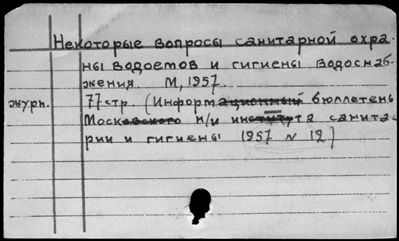 Некоторые вопросы санитарной охра-
ны водоемов и гигиены водоснаб-
жения. М, 1957.
журн. 77 стр. (Информационный бюллетень
Московского н/и института санита-
рии и гигиены 1957 N 12)